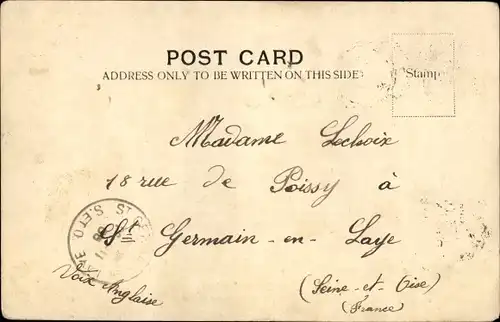 POST CARD
ADDRESS ONLY TO BE WRITTEN ON THIS SIDE
Stamp
Madame Lechoix
18 rue de Poissy à
St Germain-en-Laye
(Seine-et-Oise)
(France)
Voix Anglaise